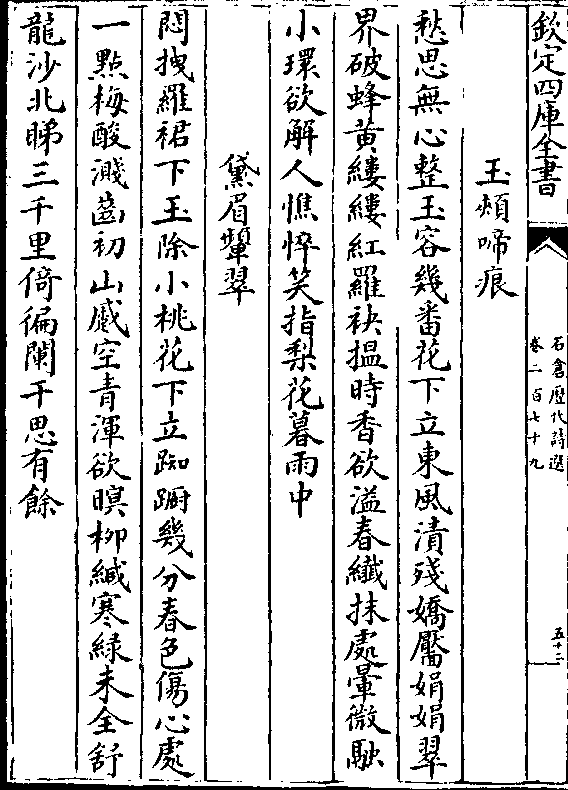 欽定四庫全書
石倉歷代詩選
卷二百七十九
五十二
玉頰啼痕
愁思無心整玉容幾番花下立東風漬殘嬌靨娟娟翠
界破蜂黃縷縷紅羅袂揾時香欲溢春纖抹處暈微融
小環欲解人憔悴笑指梨花暮雨中
黛眉顰翠
悶拽羅裙下玉除小桃花下立踟蹰幾分春色傷心處
一點梅酸濺齒初山蹙空青渾欲暝柳緘寒緑未全舒
龍沙北睇三千里倚徧闌干思有餘